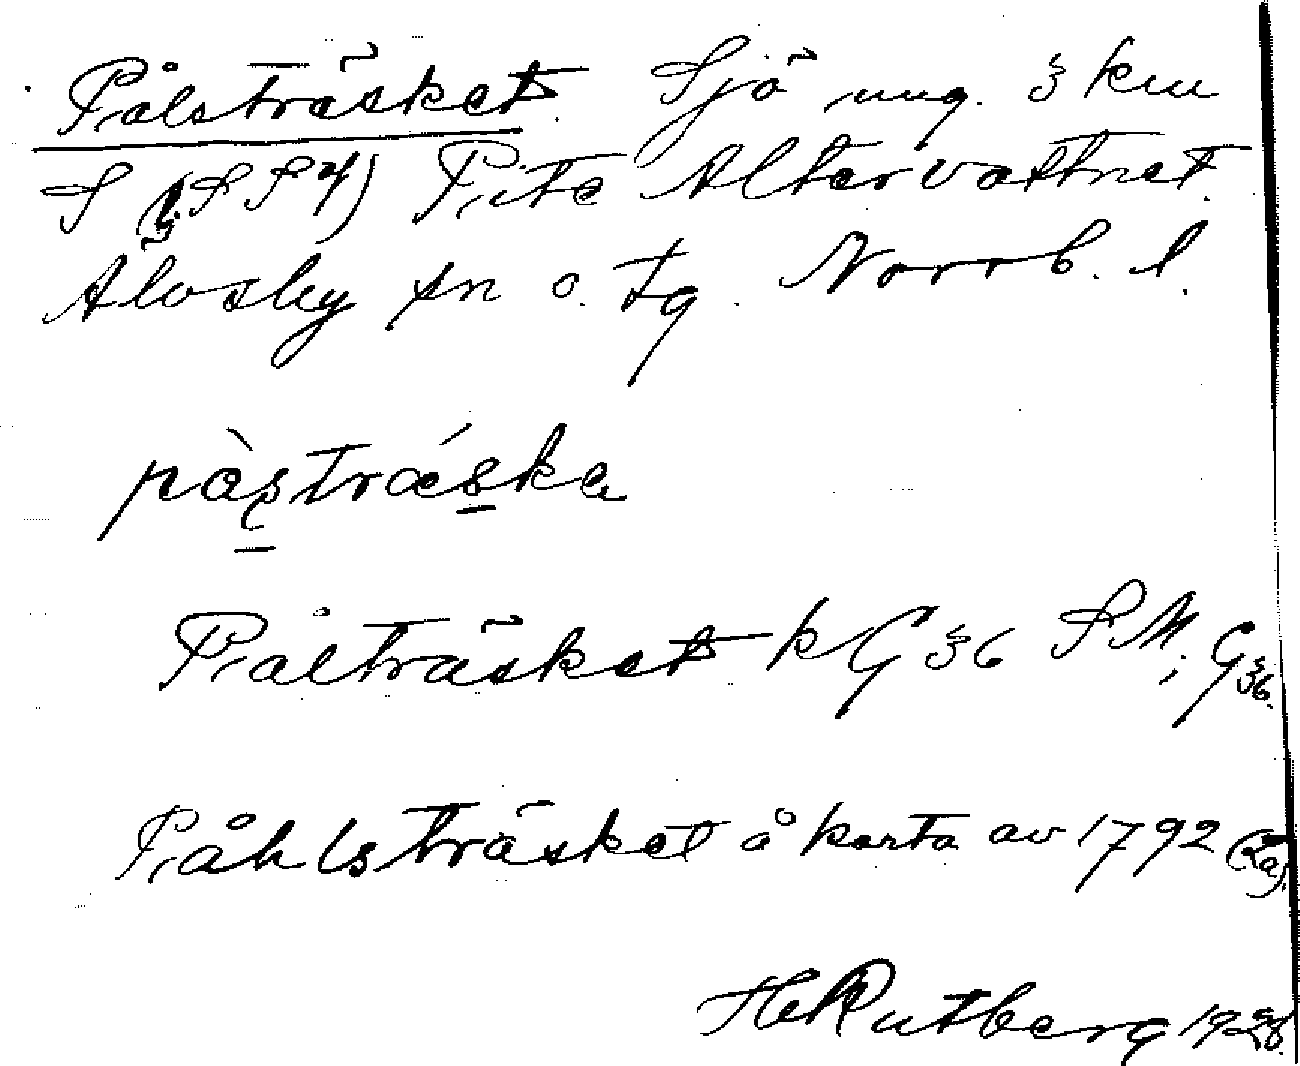 Pålsträsket. Sjö ung. 3 km
S (SSV) Pite Altervattnet.
Älvsby sn o. tg. Norrb. l.
pàstrǽska
Pålträsket k G 36 SM; G 36.
Påhlsträsket å karta av 1792 (Za).
H Rutberg 1928.